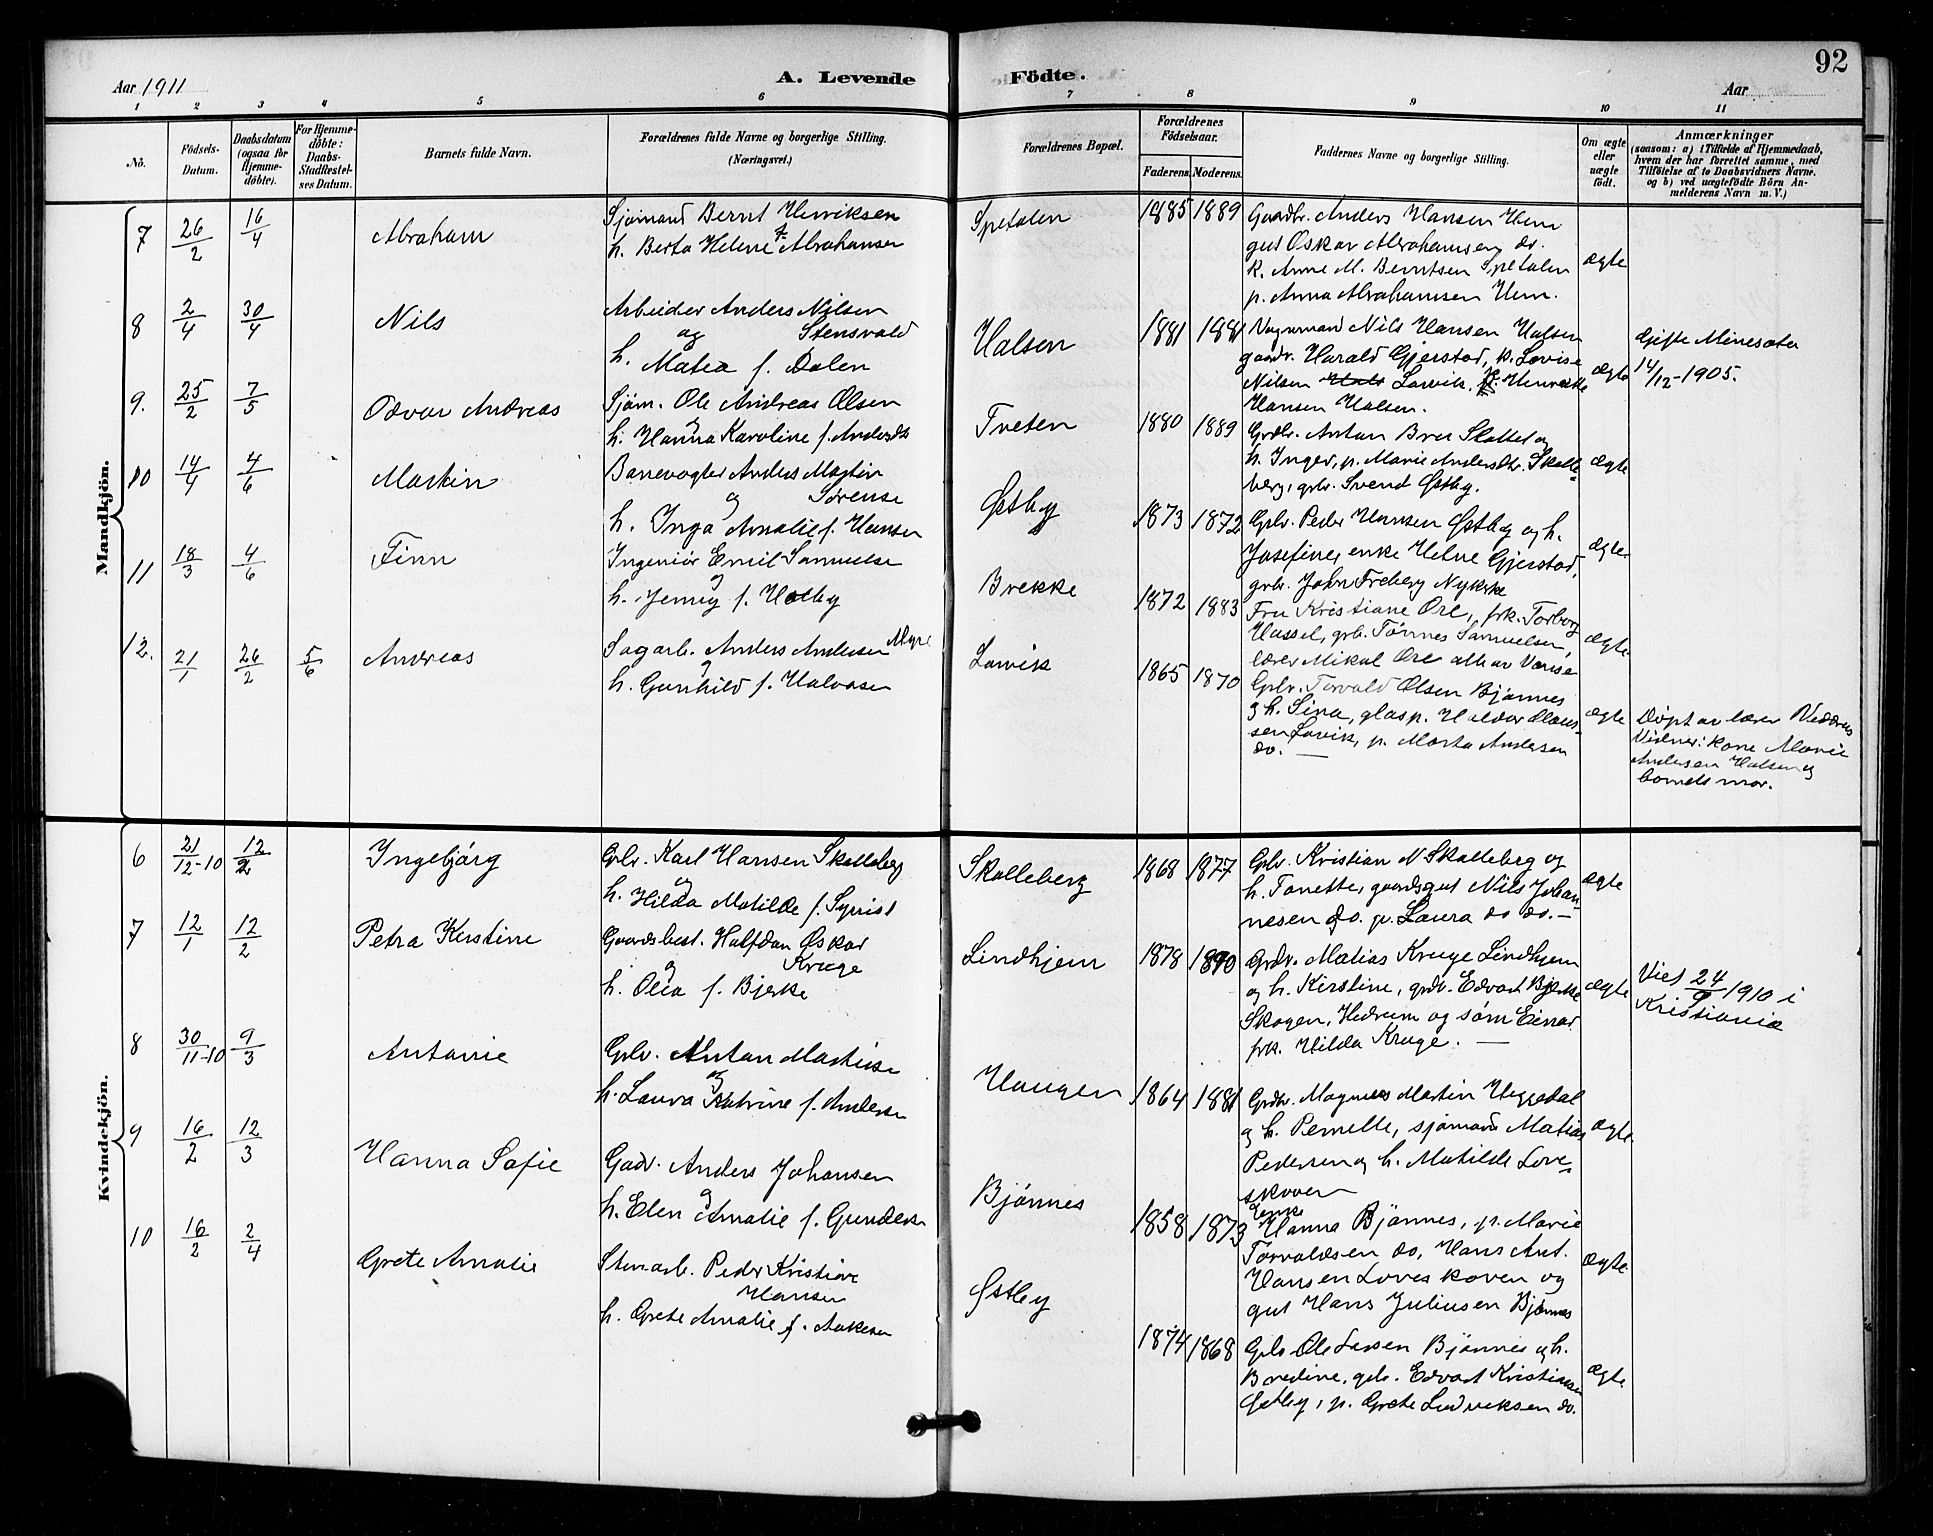 92
Aar 1911
A. Levende Födte.
Aar
1 2 3 4 5 6 7 8 9 10 11
No.
Födsels-Datum.
Daabsdatum (ogsaa for Hjemmedöbte).
For Hjemmedöbte: Daabs-Stadfestelses Datum.
Barnets fulde Navn.
Forældrenes fulde Navne og borgerlige Stilling. (Næringsvei.)
Forældrenes Bopæl.
Forældrenes Födselsaar.
Faderens Moderens.
Faddernes Navne og borgerlige Stilling.
Om ægte eller uægte födt.
Anmærkninger
(saasom: a) i Tilfælde af Hjemmedaab, hvem der har forrettet samme, med Tilföielse af to Daabsvidners Navne, og b) ved uægtefödte Börn Anmelderens Navn m. V.)
Mandkjön.
7 26/2 16/4 Abraham
Sjömand Bernt Henriksen
h. Berta Helene f. Abrahamsen
Spetalen 1885 1889
Gaardbr. Anders Hansen Hem
gut Oskar Abrahamsen do.
k. Anne M. Berntsen Spetalen
p. Anna Abrahamsen Hem.
ægte
8 2/4 30/4 Nils
Arbeider Anders Nilsen
og Stensvald
h. Matea f. Dalen
Halsen 1881 1881
Vognmand Nils Hansen Halsen
gaardr. Harald Gjerstad, p. Lovise
Nilsen Lawik, p. Henrikke
Hansen Halsen.
ægte
Gifte Minesota
14/12-1905.
9. 25/2 7/5 Odvar Andreas
Sjöm. Ole Andreas Olsen
og
h. Hanna Karoline f. Andersdt
Tveten 1880 1889
Grdbr. Anton Brer Skalleb og
h. Inger, p. Marie Andersdtr. Skalle
berg, grbr. Svend Østby.
ægte
10 14/4 4/6 Martin
Banevogter Anders Martin
og Sörense
h. Inga Amalie f. Hansen
Østby 1873 1872
Gbr. Peder Hansen Østby og h.
Josefine, enke Helne Gjerstad,
grbr. John Freberg Nykirke
ægte
11 18/3 4/6 Finn
Ingeniör Emil Samuelse
og
h. Jenny f. Holby
Brekke 1872 1883
Fru Kristiane Ore, frk. Torborg
Hassel, grb. Tönnes Samuelsen,
lærer Mikal Ore alle av Vanse
ægte
12. 21/1 26/2 5/6 Andreas
Sagarb. Anders Andersen Myre
og
h. Gunhild f. Halvorsen
Lawik 1865 1870
Gbr. Torvald Olsen Bjönnes
og h. Sina, glasp. Haldor Claus-
sen Lawik, p. Marta Andersen
do.
ægte
Döpt av lærer
Vidner: kone Marie
Andersen Halsen og
barnets mor.
Kvindekjön.
6 21/12-10 12/2 Ingebjörg
Gbr. Karl Hansen Skalleberg
og
h. Hilda Matilde f. Syvist
Skalleberg 1868 1877
Gbr. Kristian N Skalleberg og
h. Tonette, gaardsgut Nils Johan-
nesen do. p. Laura do do.
ægte
7 12/1 12/2 Petra Kerstine
Gaardsbest. Halfdan Oskar
og Kruge
h. Olea f. Bjerke
Lindhjem 1878 1890
Grdr. Matias Kruge Lindhjem
og h. Kirstine, grdr. Edvart Bjerke
Skogen, Hedrum og søn Einar
frk. Hilda Kruge.
ægte
Viet 24/9 1910 i
Kristiania
8 30/11-10 9/3 Antonie
Gbr. Anton Martinse
og
h. Laura Katrine f. Anderse
Haugen 1864 1881
Grdbr. Magnus Martin Heggedal
og h. Pernelle, sjömand Matias
Pedersen og h. Matilde Love-
skoven
ægte
9 16/2 12/3 Hanna Sofie
Gadr. Anders Johansen
og
h. Elen Amalie f. Gunderse
Bjönnes 1858 1873
Enke
Hanna Bjönnes, p. Marie
Torvaldsen do, Hans Ant.
Hansen Loveskoven og
gut Hans Juliusen Bjönnes
ægte
10 16/2 2/4 Grete Amalie
Stenarb. Peder Kristian
Hansen
h. Grete Amalie f. Aakesen
Østby 1874 1868
Gbr Ole Larsen Bjönnes og h.
Bredine, gbr. Edvart Kristiansen
Østby, p. Grete Ludviksen do.
ægte